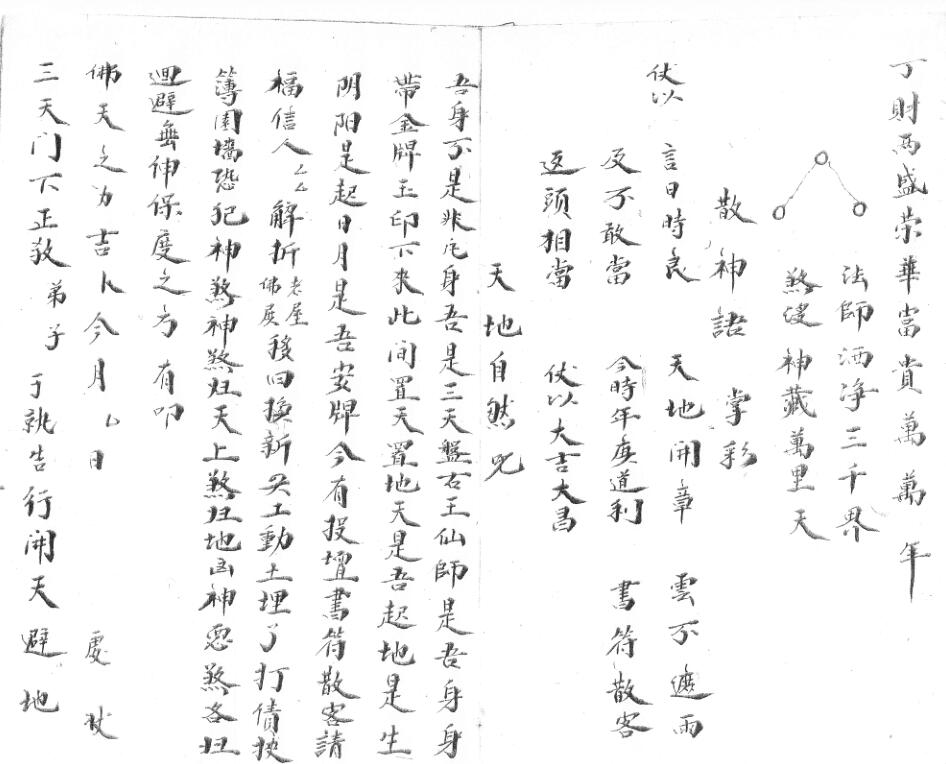 丁財両盛荣華富貴萬萬年
法師洒净三千界
煞 神藏萬里天
散神語 掌彩
伏以 言日時良 天地開章 雲不遮雨
反不敢當 今時年庚道利 書符散客
返頭相當 伏以大吉大昌
天地自然咒
吾身不是非凡身吾是三天盤古王仙師是吾身身
帶金牌玉印下來此间置天置地天是吾起地是生
阴阳是起日月是吾安牌今有投壇書符散客請
福信人厶厶解折老屋佛屋移旧换新 工動土埋了打債挾
簿園墻恐犯神煞神煞归天上煞归地凶神恶煞各归
廻避無神保度之方有叩
佛天之为吉卜今月厶日 虔
三天门下正教弟子 于執告行開天避地